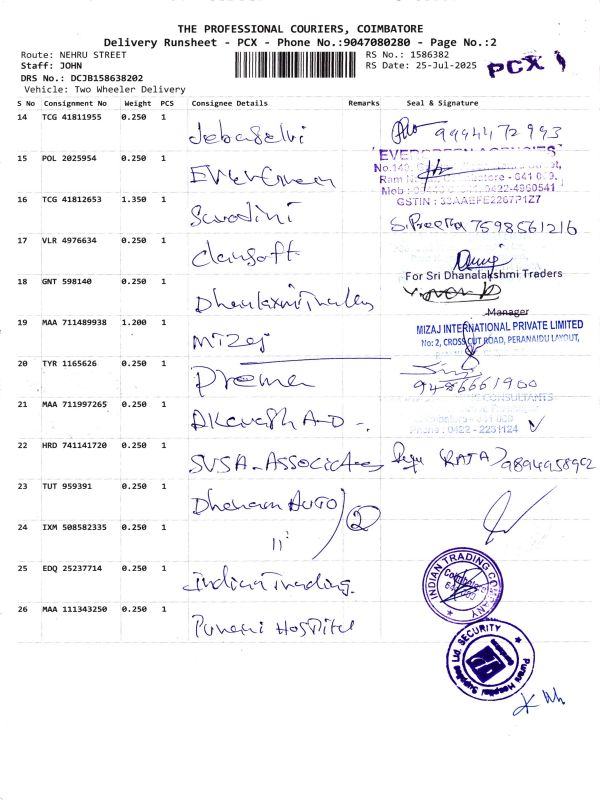 THE PROFESSIONAL COURIERS, COIMBATORE
Delivery Runsheet - PCX - Phone No.:9047080280 - Page No.:2
Route: NEHRU STREET
RS No.: 1586382
Staff: JOHN
RS Date: 25-Jul-2025
PCX
DRS No.: DCJB158638202
Vehicle: Two Wheeler Delivery
S No Consignment No Weight PCS Consignee Details Remarks Seal & Signature
14 TCG 41811955 0.250 1
Jebaselvi 9994472993
15 POL 2025954 0.250 1
Evergreen
EVERGREEN AGENCIES
GSTIN : 33AAEFE2267P1Z7
16 TCG 41812653 1.350 1
Sarodini
S. Preetha 7598561216
17 VLR 4976634 0.250 1
Clansoft
18 GNT 598140 0.250 1
For Sri Dhanalakshmi Traders
Manager
19 MAA 711489938 1.200 1
Mizaj
MIZAJ INTERNATIONAL PRIVATE LIMITED
No: 2, CROSS CUT ROAD, PERANAIDU LAYOUT,
20 TYR 1165626 0.250 1
Prema
9486661900
21 MAA 711997265 0.250 1
CONSULTANTS
Phone : 0422 - 2231124
22 HRD 741141720 0.250 1
SVSA-Associates
(RAJA) 9894958992
23 TUT 959391 0.250 1
Dhanam Auto
24 IXM 508582335 0.250 1
11 2
25 EDQ 25237714 0.250 1
Indian Trading.
INDIAN TRADING COMPANY
26 MAA 111343250 0.250 1
Purani Hospital
Purani Hospital Supplies Ltd. SECURITY